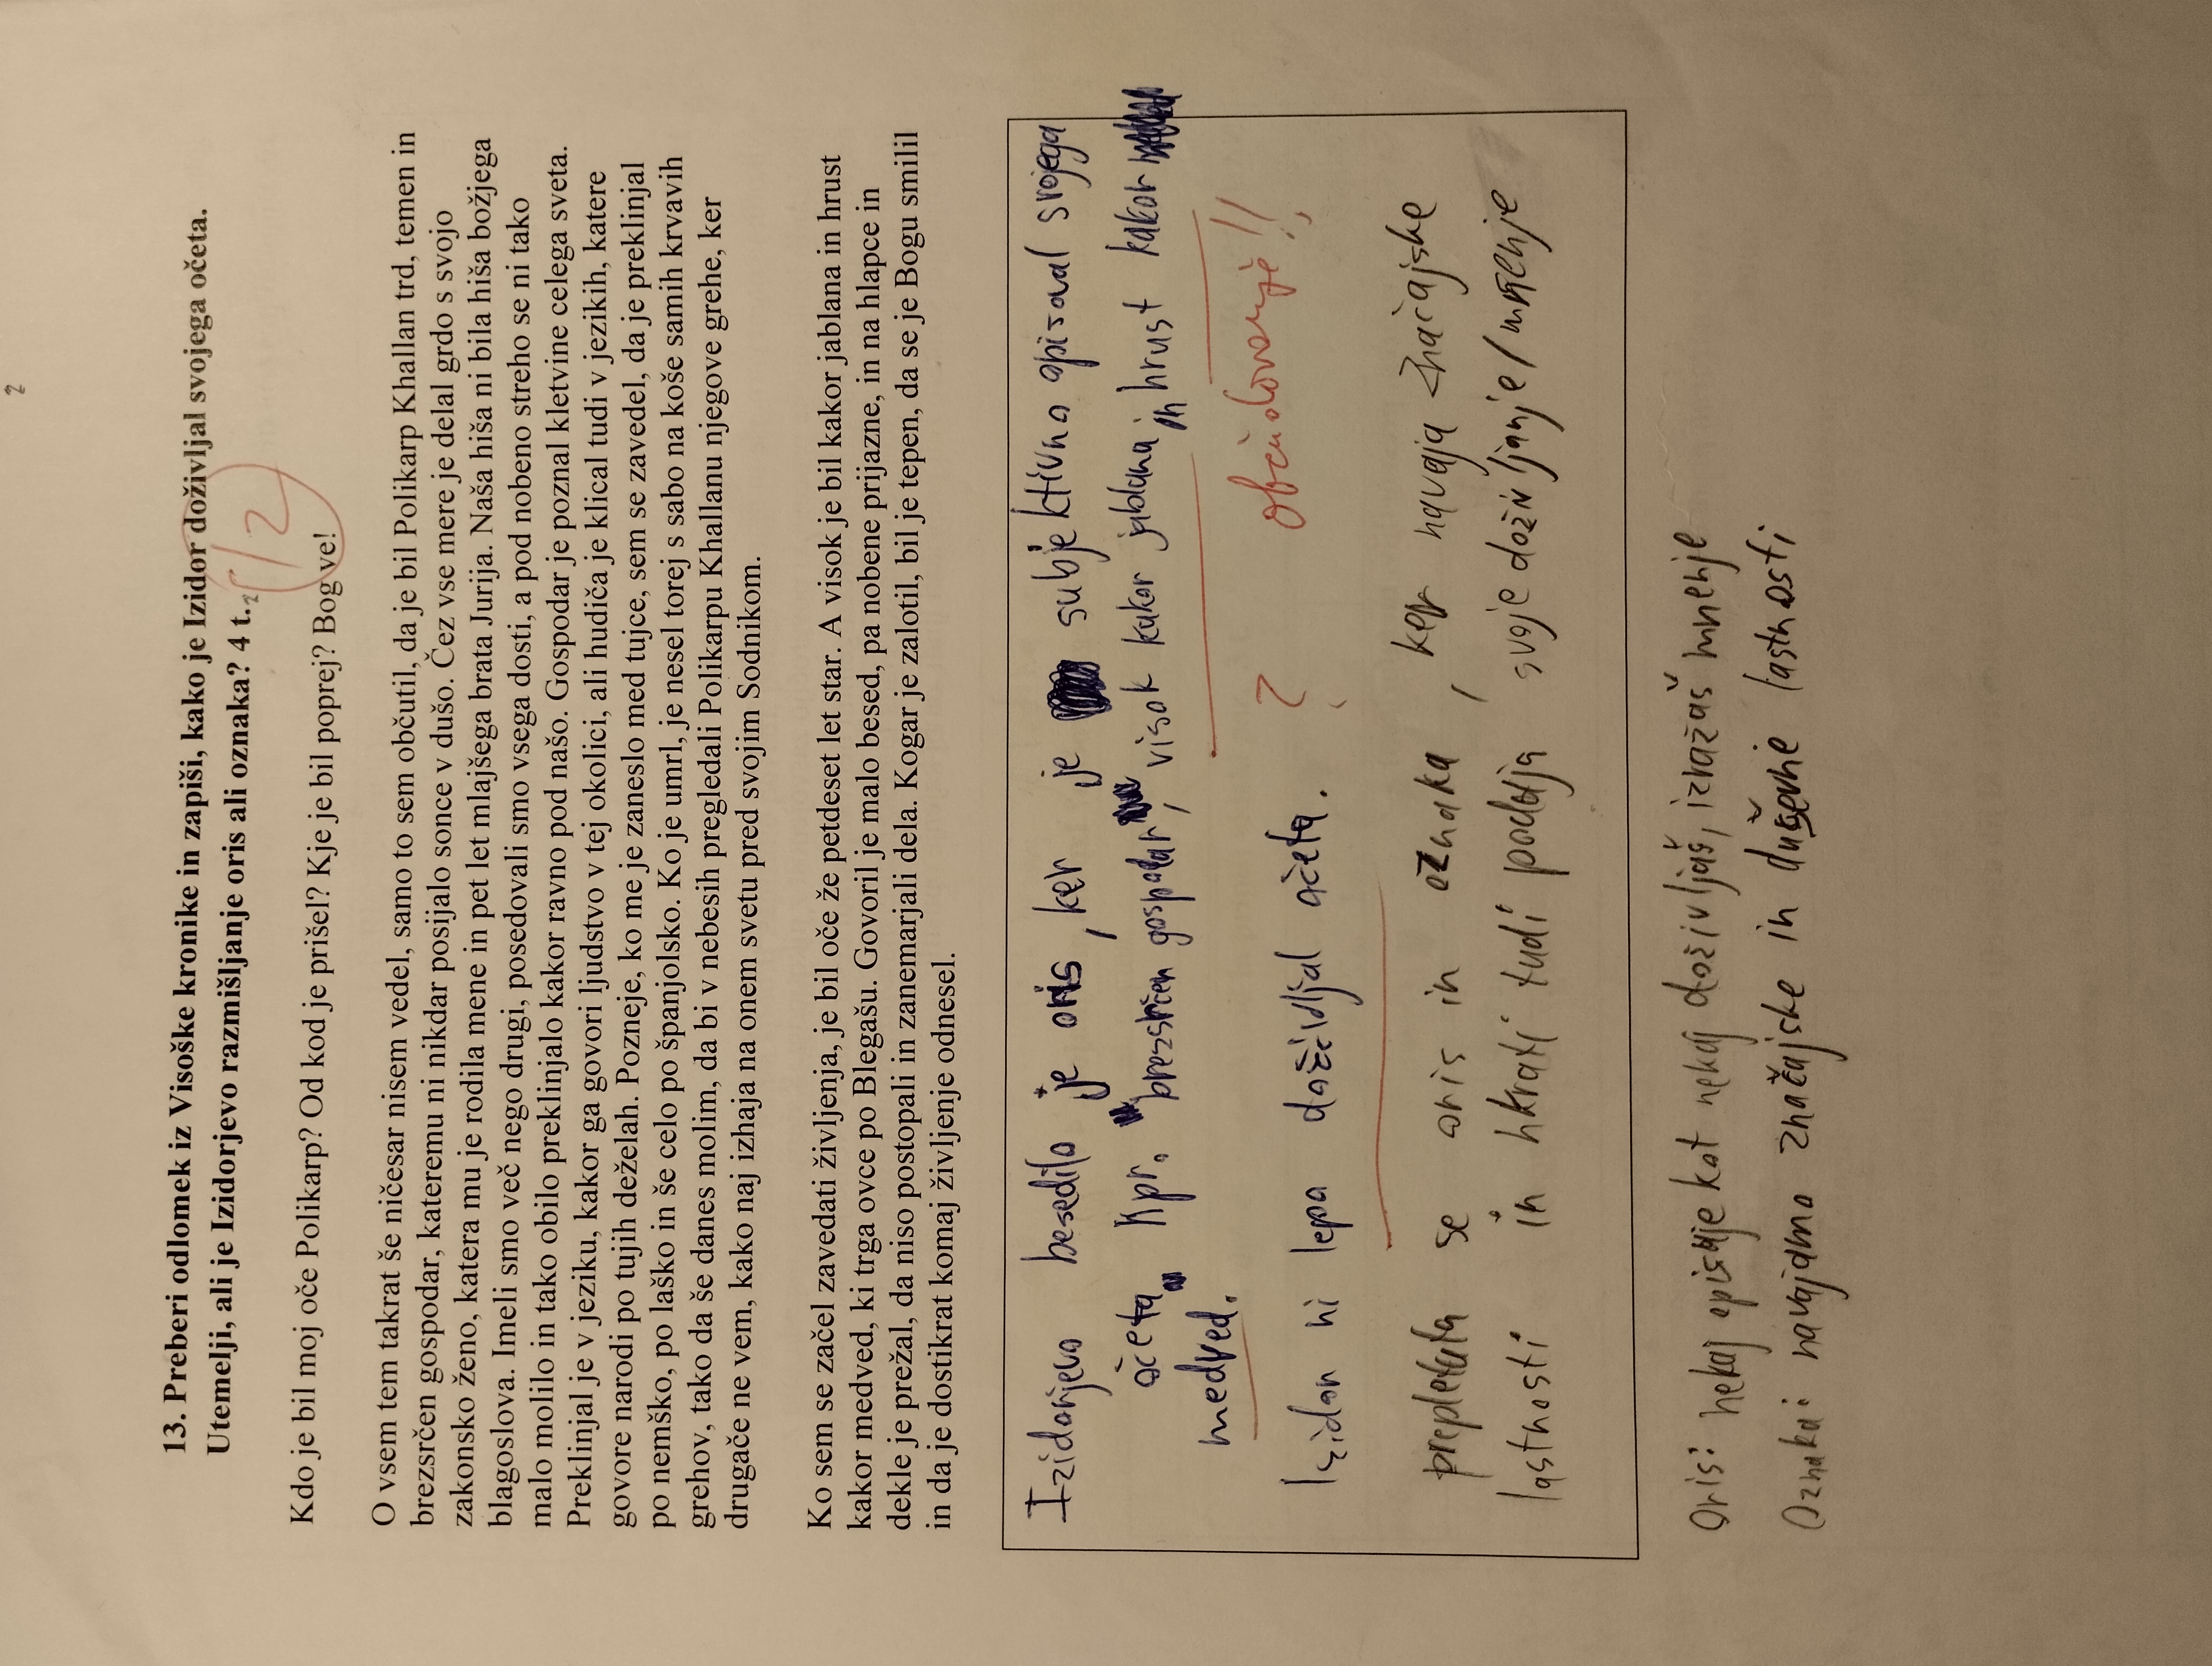 2
13. Preberi odlomek iz Visoške kronike in zapiši, kako je Izidor doživljal svojega očeta.
Utemelji, ali je Izidorjevo razmišljanje oris ali oznaka? 4 t.
2
Kdo je bil moj oče Polikarp? Od kod je prišel? Kje je bil poprej? Bog ve!
O vsem tem takrat še ničesar nisem vedel, samo to sem občutil, da je bil Polikarp Khallan trd, temen in
brezsrčen gospodar, kateremu ni nikdar posijalo sonce v dušo. Čez vse mere je delal grdo s svojo
zakonsko ženo, katera mu je rodila mene in pet let mlajšega brata Jurija. Naša hiša ni bila hiša božjega
blagoslova. Imeli smo več nego drugi, posedovali smo vsega dosti, a pod nobeno streho se ni tako
malo molilo in tako obilo preklinjalo kakor ravno pod našo. Gospodar je poznal kletvine celega sveta.
Preklinjal je v jeziku, kakor ga govori ljudstvo v tej okolici, ali hudiča je klical tudi v jezikih, katere
govore narodi po tujih deželah. Pozneje, ko me je zaneslo med tujce, sem se zavedel, da je preklinjal
po nemško, po laško in še celo po španjolsko. Ko je umrl, je nesel torej s sabo na koše samih krvavih
grehov, tako da še danes molim, da bi v nebesih pregledali Polikarpu Khallanu njegove grehe, ker
drugače ne vem, kako naj izhaja na onem svetu pred svojim Sodnikom.
Ko sem se začel zavedati življenja, je bil oče že petdeset let star. A visok je bil kakor jablana in hrust
kakor medved, ki trga ovce po Blegašu. Govoril je malo besed, pa nobene prijazne, in na hlapce in
dekle je prežal, da niso postopali in zanemarjali dela. Kogar je zalotil, bil je tepen, da se je Bogu smilil
in da je dostikrat komaj življenje odnesel.
Izidorjevo besedilo je oris, ker je subjektivno opisoval svojega
očeta. Npr. brezsrčen gospodar, visok kakor jablana in hrust kakor
medved.
? občudovanje!!
Izidor ni lepo doživljal očeta.
prepletata se oris in oznaka, ker navaja značajske
lastnosti in hkrati tudi podaja svoje doživljanje/mnenje
Oris: nekaj opisuje kot nekaj doživljaš, izražaš mnenje
Oznaka: navajamo značajske in duševne lastnosti